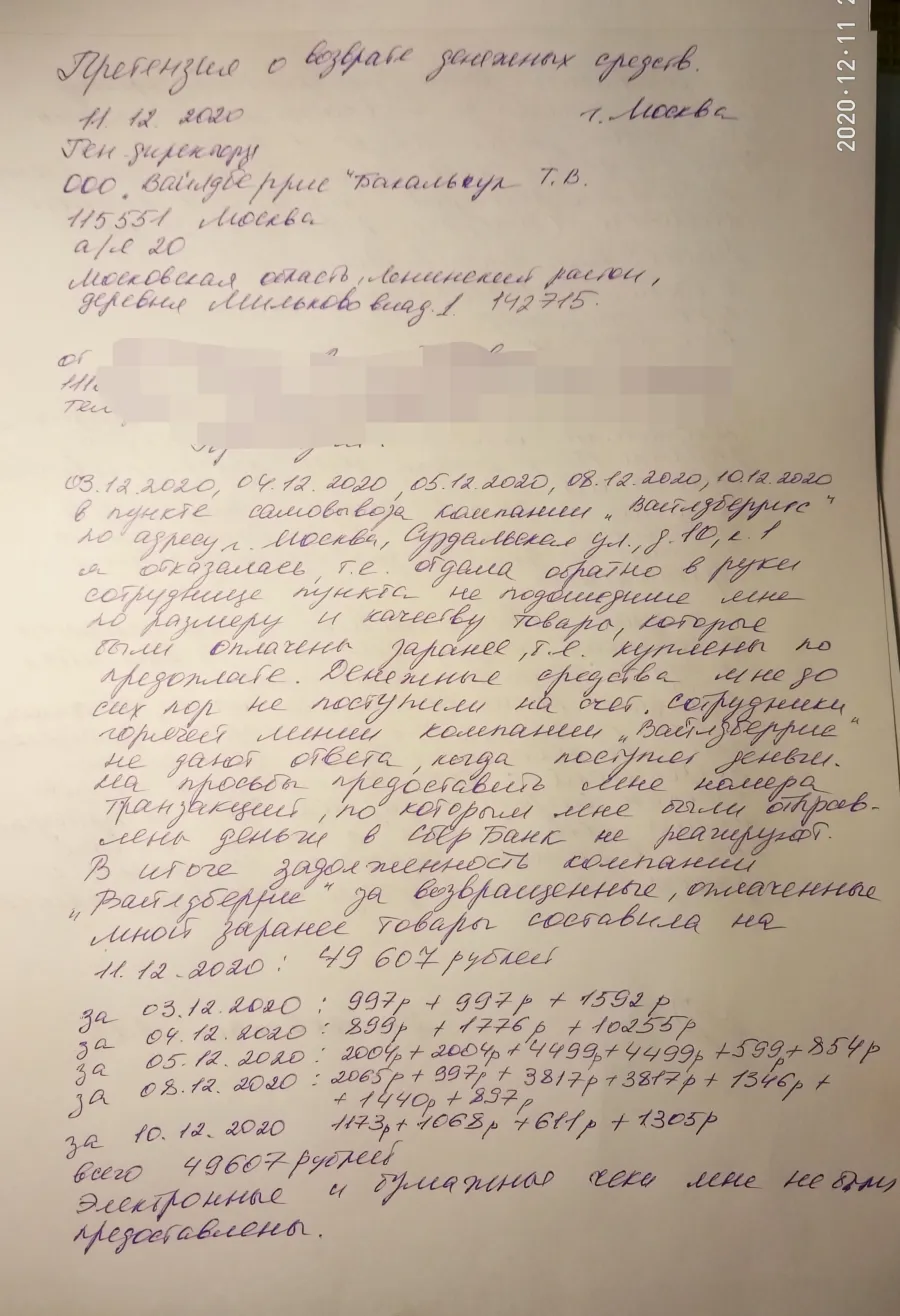 2020·12·11 2
Претензия о возврате денежных средств.
11. 12. 2020 г. Москва
Ген. директору
ООО „Вайлдберрис" Бакальчук Т.В.
115551 Москва
а/я 20
Московская область, Ленинский район,
деревня Мильково влад.1. 142715.
от
111
тел
03.12.2020, 04.12.2020, 05.12.2020, 08.12.2020, 10.12.2020
в пункте самовывоза компании „Вайлдберрис"
по адресу г. Москва, Суздальская ул., д.10, к.1
я отказалась, т.е. отдала обратно в руки
сотруднице пункта не подошедшие мне
по размеру и качеству товары, которые
были оплачены заранее, т.е. куплены по
предоплате. Денежные средства мне до
сих пор не поступили на счет. Сотрудники
горячей линии компании „Вайлдберрис"
не дают ответа, когда поступят деньги.
На просьбы предоставить мне номера
транзакций, по которым мне были отправ-
лены деньги в СберБанк не реагируют.
В итоге задолженность компании
„Вайлдберрис" за возвращенные, оплаченные
мной заранее товары составила на
11.12.2020: 49 607 рублей
за 03.12.2020: 997р + 997р + 1592р
за 04.12.2020: 899р + 1776р + 10255р
за 05.12.2020: 2004р + 2004р + 4499р + 4499р + 599р + 854р
за 08.12.2020: 2065р + 997р + 3817р + 3817р + 1346р +
+ 1440р + 897р
за 10.12.2020 1173р + 1068р + 611р + 1305р
всего 49607 рублей
Электронные и бумажные чеки мне не были
предоставлены.